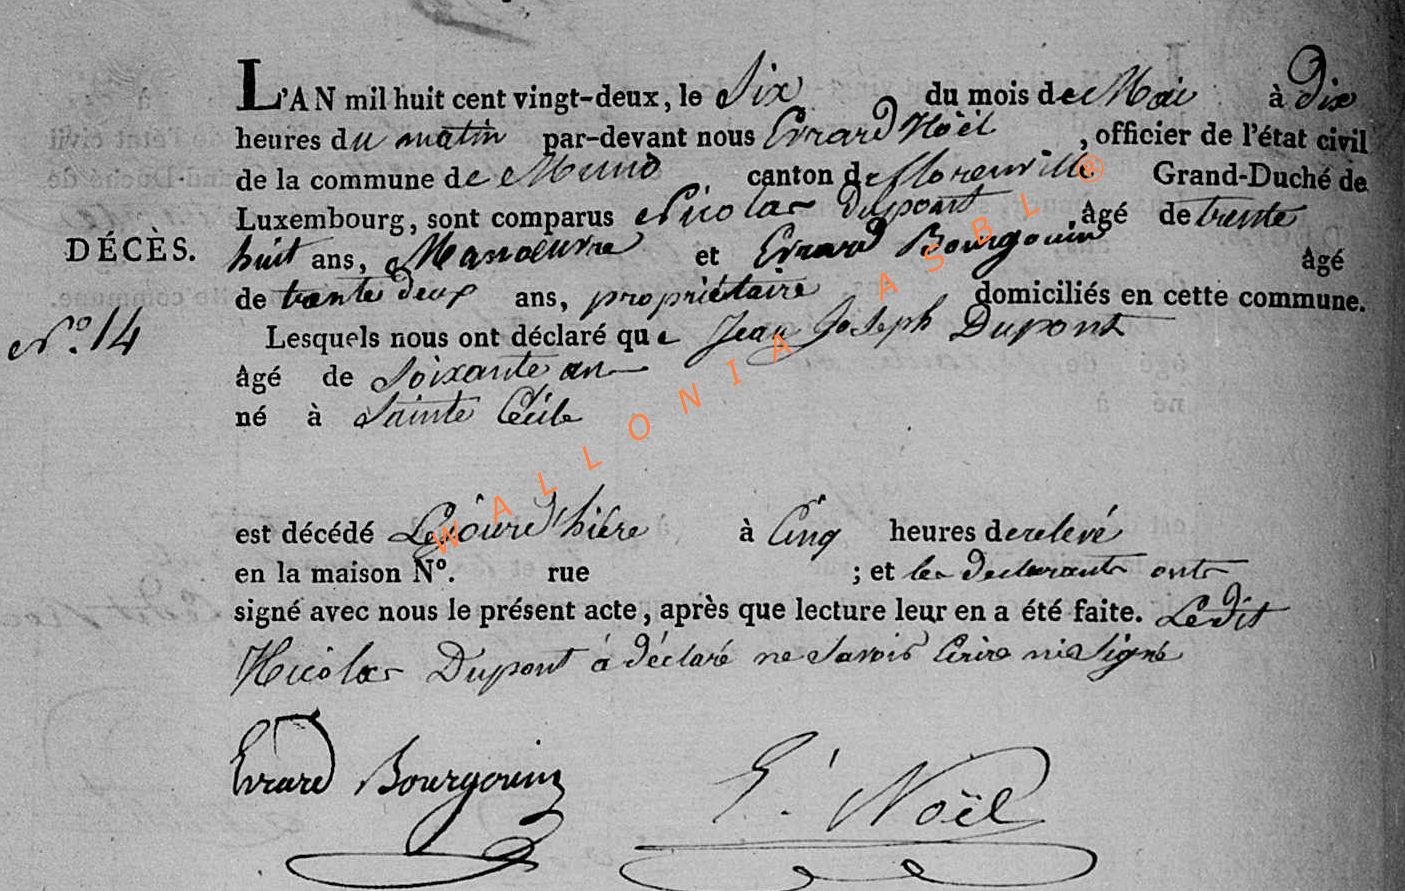 L'AN mil huit cent vingt-deux, le Six du mois de Mai à Dix
heures du matin par-devant nous Evrard Noël, officier de l'état civil
de la commune de Muno canton de florenville Grand-Duché de
Luxembourg, sont comparus Nicolas Dupont, âgé de trente
DÉCÈS. huit ans, Manoeuvre et Evrard Bourgouin âgé
de trente deux ans, propriétaire domiciliés en cette commune.
N.º 14 Lesquels nous ont déclaré que Jean Joseph Dupont
âgé de Soixante an
né à Sainte Cécile
est décédé Lejourd'hière à Cinq heures de relevé
en la maison Nº. rue ; et les declarants ont
signé avec nous le présent acte, après que lecture leur en a été faite. Ledit
Nicolas Dupont à déclaré ne Savoir Ecrire ni Signé
Evrard Bourgouin E. Noël
WALLONIA ASBL ®